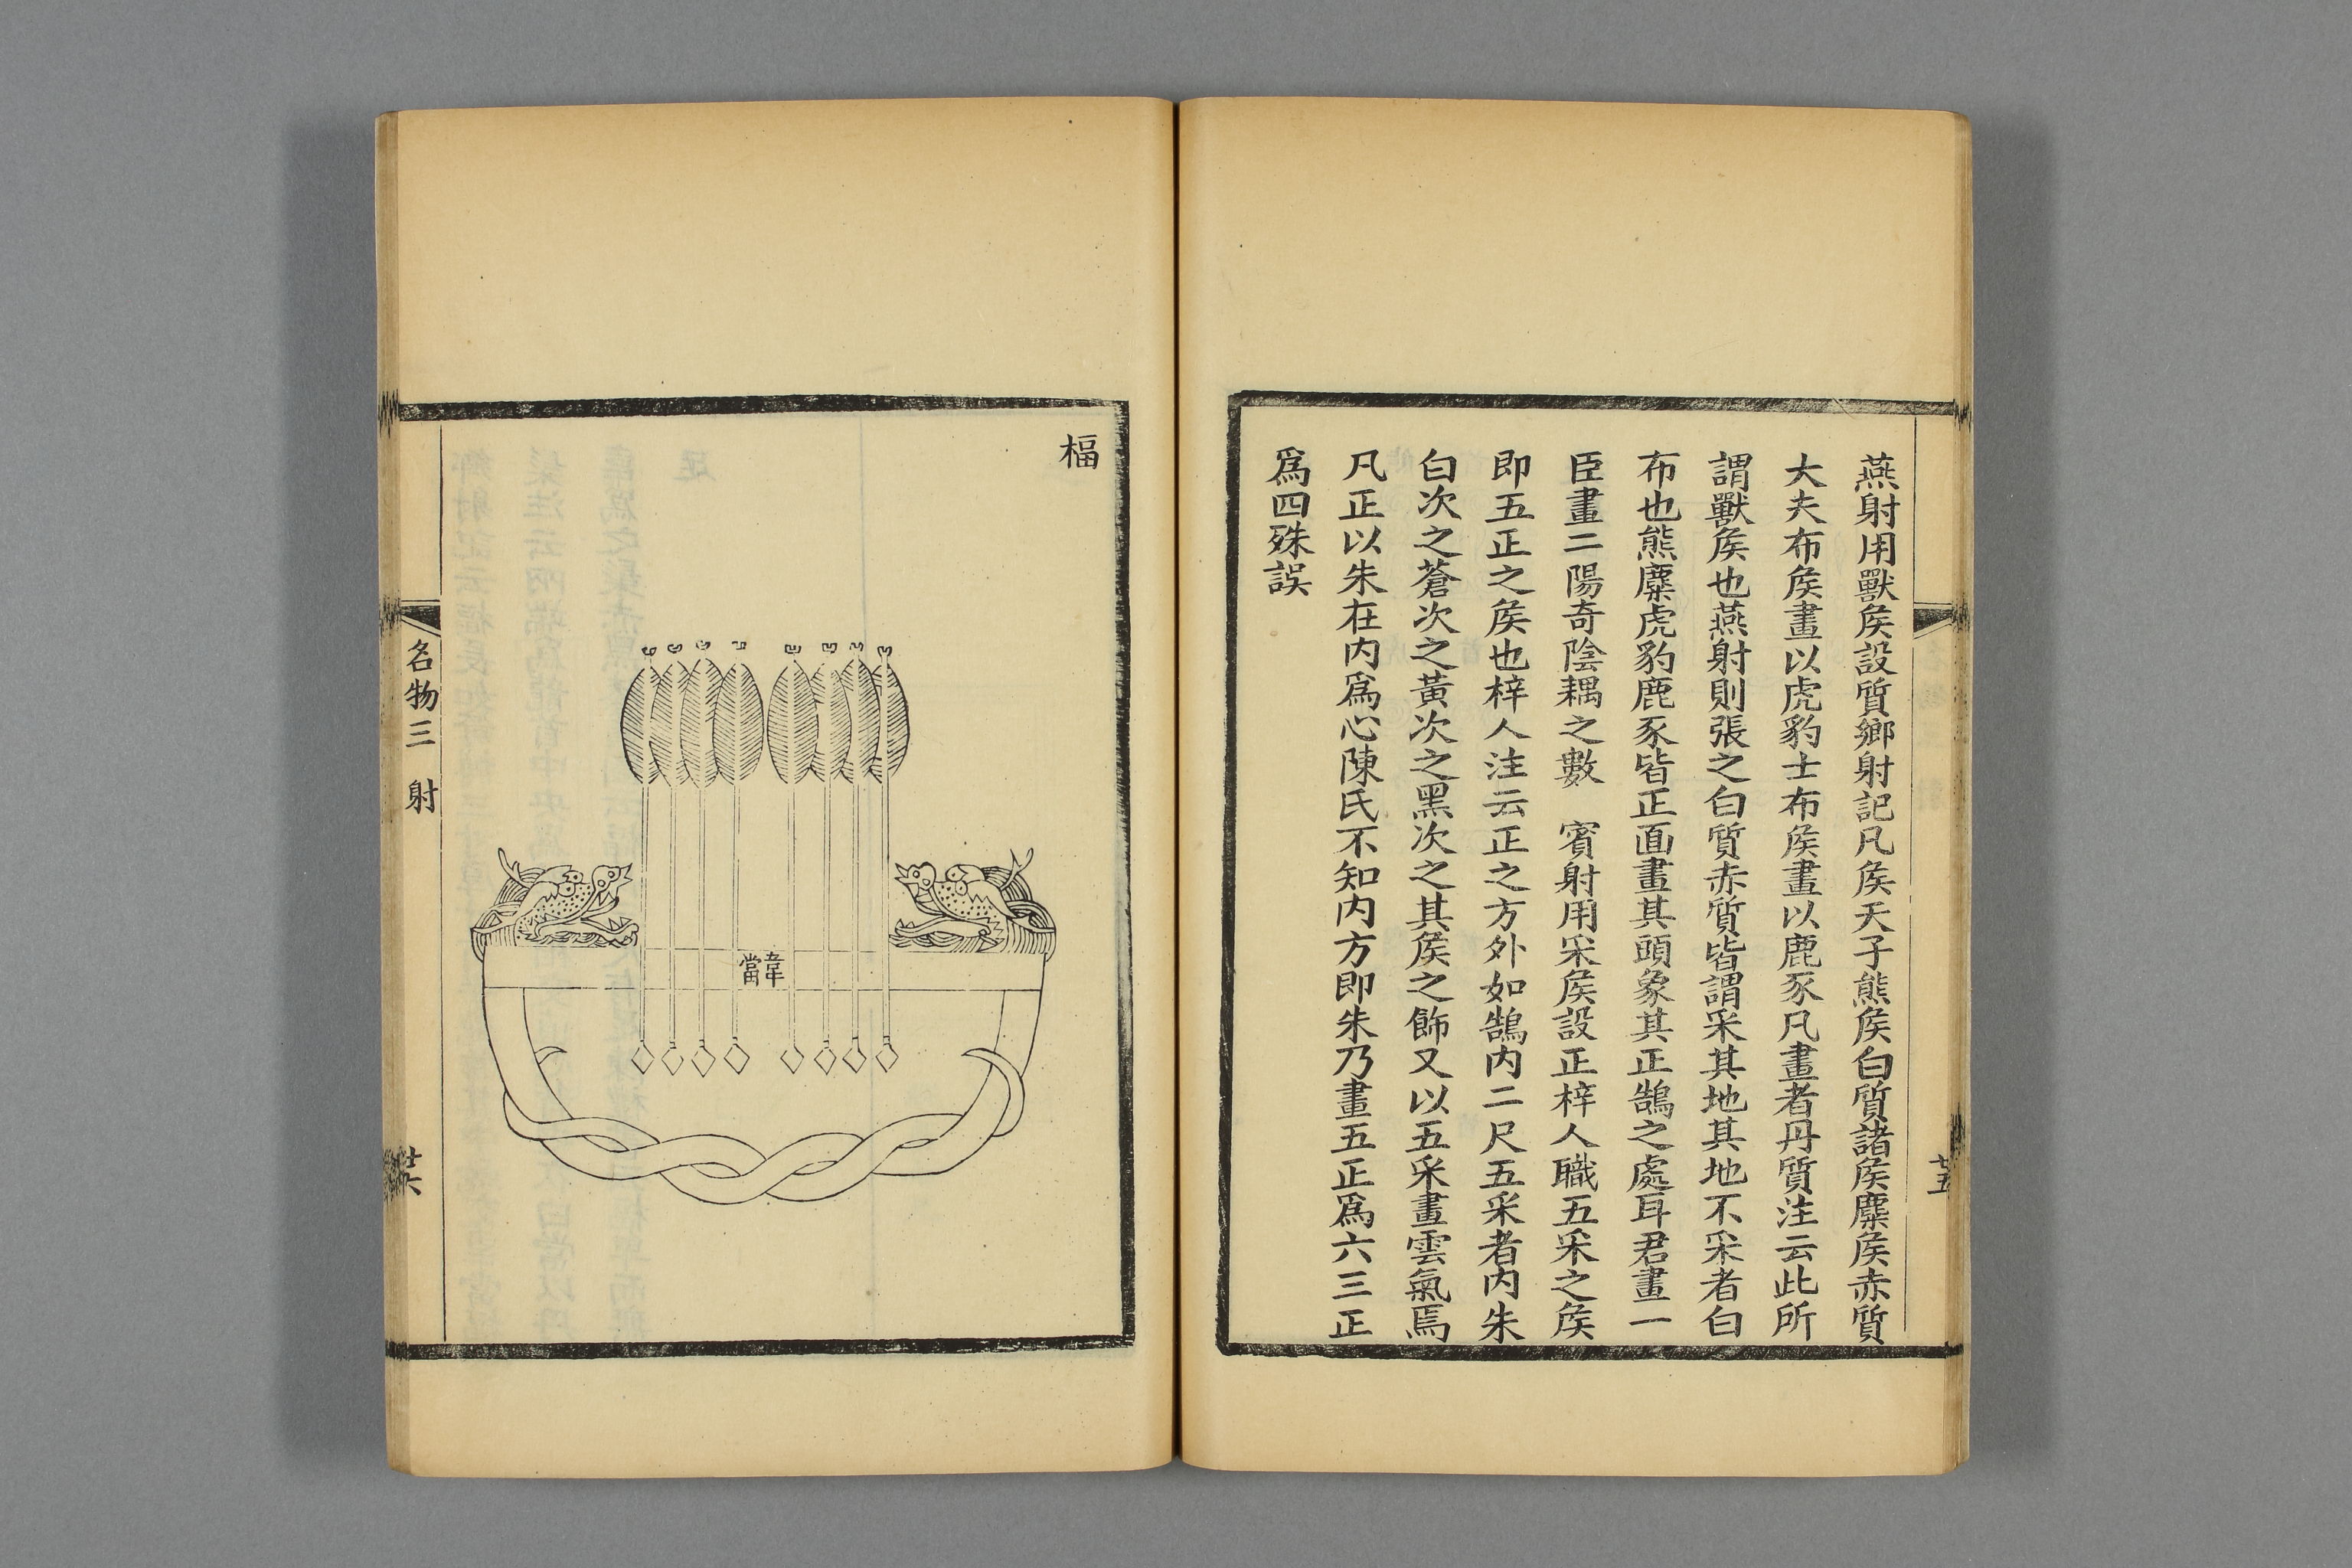 燕射用獸矦設質鄉射記凡矦天子熊矦白質諸矦麋矦赤質
大夫布矦畫以虎豹士布矦畫以鹿豕凡畫者丹質注云此所
謂獸矦也燕射則張之白質赤質皆謂采其地其地不采者白
布也熊麋虎豹鹿豕皆正面畫其頭象其正鵠之處耳君畫一
臣畫二陽奇陰耦之數　賓射用采矦設正梓人職五采之矦
即五正之矦也梓人注云正之方外如鵠內二尺五采者內朱
白次之蒼次之黃次之黑次之其矦之飾又以五采畫雲氣焉
凡正以朱在內爲心陳氏不知內方即朱乃畫五正爲六三正
爲四殊誤
廿五
楅
韋當
名物三　射
廿六